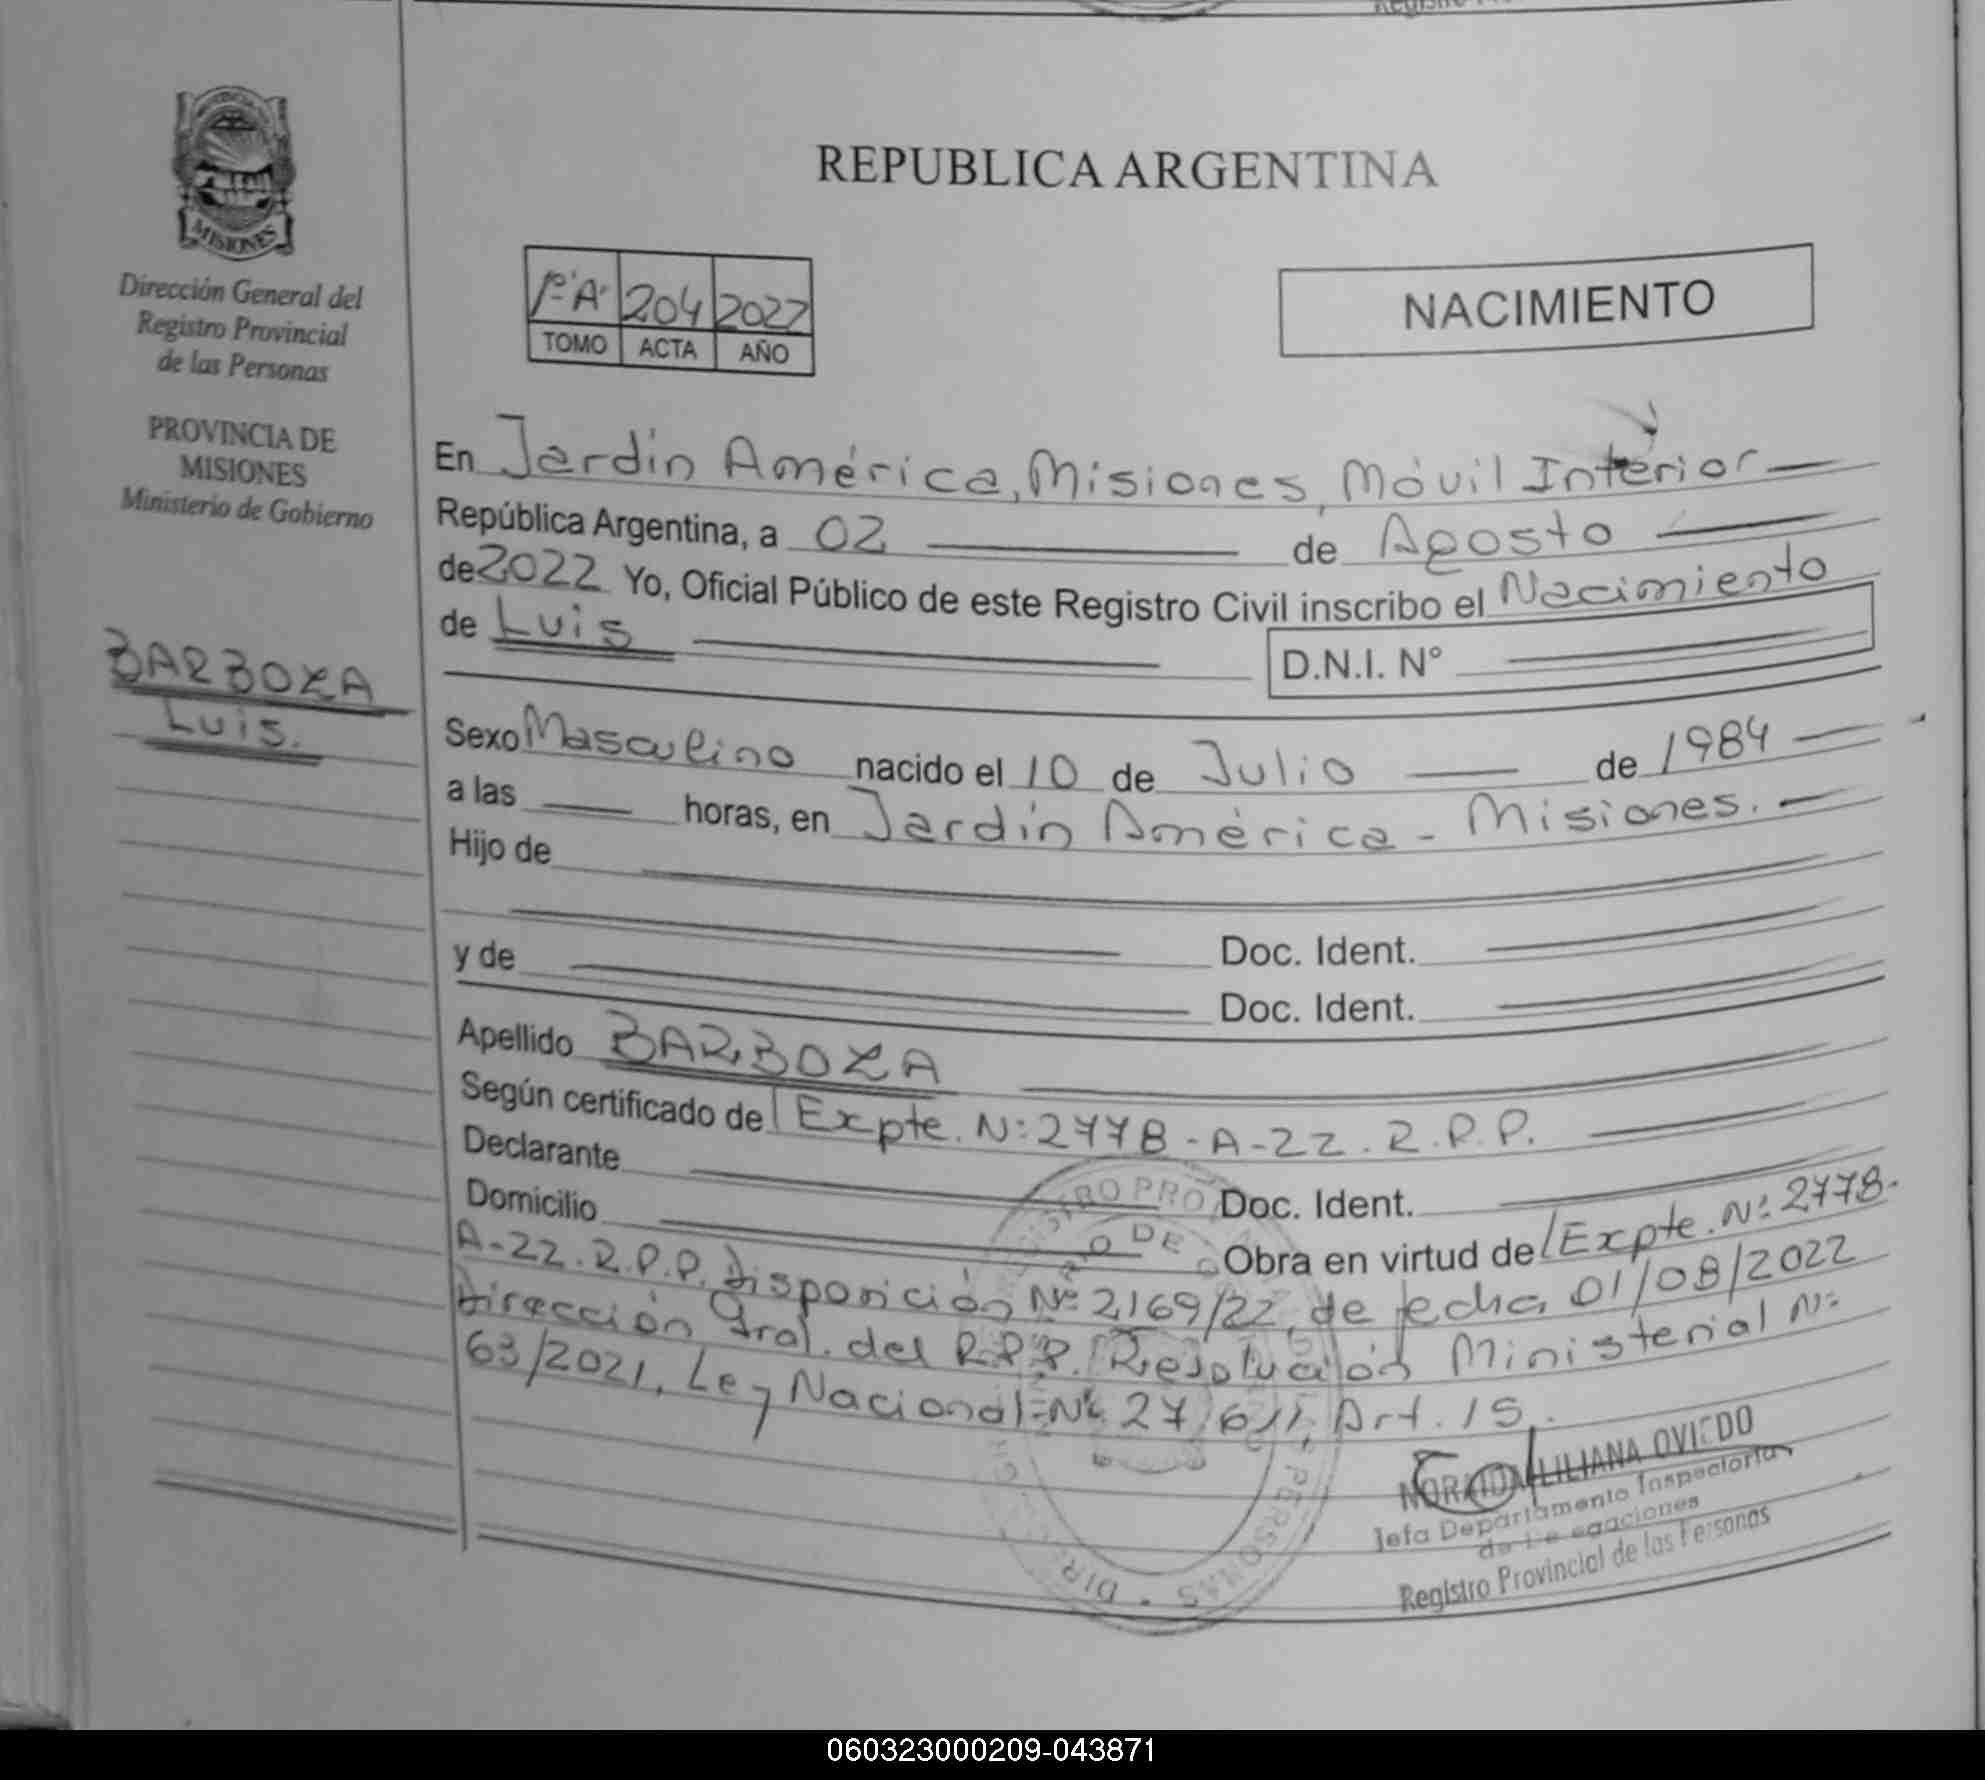 MISIONES
Dirección General del
Registro Provincial
de las Personas
PROVINCIA DE
MISIONES
Ministerio de Gobierno
BARBOZA
Luis.
REPUBLICA ARGENTINA
1º"A" 204 2022
TOMO ACTA AÑO
NACIMIENTO
En Jardín América, Misiones, Móvil Interior
República Argentina, a 02 de Agosto
de 2022 Yo, Oficial Público de este Registro Civil inscribo el Nacimiento
de Luis D.N.I. N°
Sexo Masculino nacido el 10 de Julio de 1984
a las horas, en Jardín América - Misiones.
Hijo de
Doc. Ident.
y de
Doc. Ident.
Apellido BARBOZA
Según certificado de Expte. Nº 2778-A-22. R.P.P.
Declarante Doc. Ident.
Domicilio Obra en virtud de Expte. Nº 2778-
A-22. R.P.P. Disposición Nº 2169/22, de fecha 01/08/2022
Dirección Gral. del R.P.P. Resolución Ministerial Nº
63/2021, Ley Nacional Nº 27.611, Art. 15.
LILIANA OVIEDO
Jefa Departamento Inspectoria
Registro Provincial de las Personas
060323000209-043871